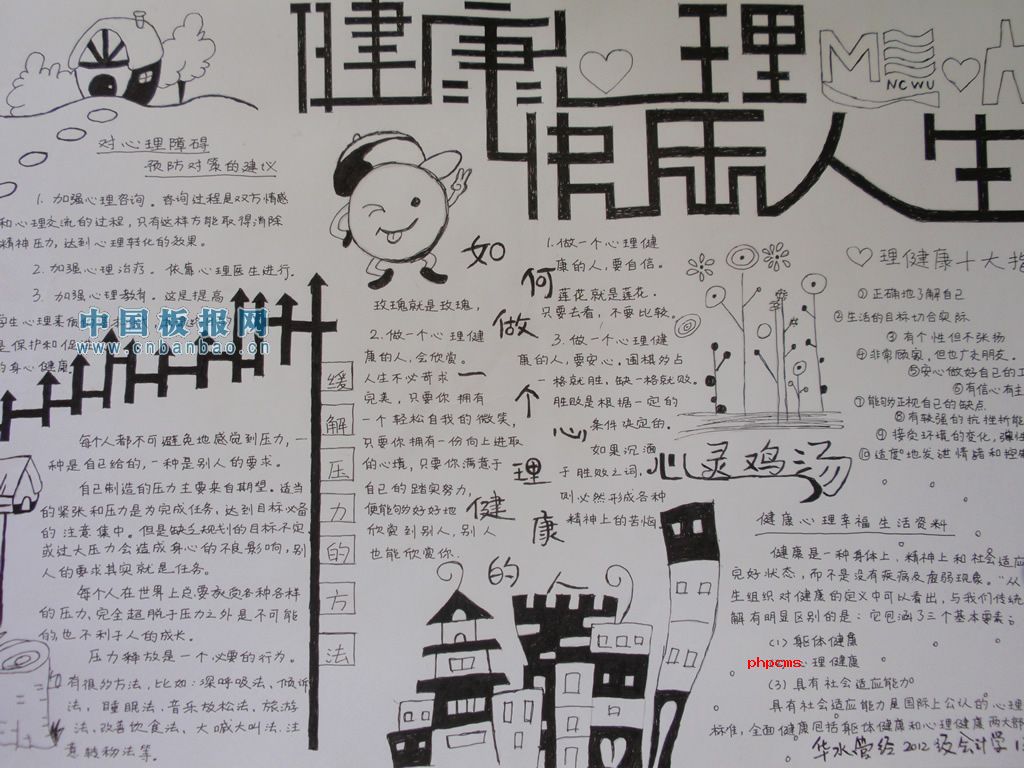 健康心理
快乐人生
NCWU
对心理障碍
预防对策的建议
1. 加强心理咨询。咨询过程是双方情感
和心理交流的过程，只有这样方能取得消除
精神压力，达到心理转化的效果。
2. 加强心理治疗。依靠心理医生进行.
3. 加强心理教育。这是提高
中国板报网
www.cnbanbao.cn
是保护和促
的身心健康.
每个人都不可避免地感觉到压力，一
种是自己给的，一种是别人的要求。
自己制造的压力主要来自期望。适当
的紧张和压力是为完成任务，达到目标必备
的注意集中。但是缺乏规划的目标不定
或过大压力会造成身心的不良影响，别
人的要求其实就是任务。
每个人在世界上总要承受各种各样
的压力，完全超脱于压力之外是不可能
的，也不利于人的成长。
压力释放是一个必要的行为。
有很多方法，比如：深呼吸法、倾诉
法，睡眠法、音乐放松法、旅游
法、改善饮食法、大喊大叫法、注
意转移法等。
缓解压力的方法
如何做一个心理健康的人
1.做一个心理健
康的人，要自信。
莲花就是莲花.
只要去看，不要比较。
玫瑰就是玫瑰，
2.做一个心理健
康的人，会欣赏。
人生不必苛求
完美，只要你拥有
一个轻松自我的微笑，
只要你拥有一份向上进取
的心境，只要你满意于
自己的踏实努力，
便能够好好地
欣赏到别人，别人
也能欣赏你.
3. 做一个心理健
康的人，要安心。围棋多占
一格就胜，缺一格就败。
胜败是根据一定的
条件决定的.
如果沉湎
于胜败之词，
则必然形成各种
精神上的苦恼
理健康十大指
①正确地了解自己
②生活的目标切合实际
③有个性但不张扬
④非常顾家，但也广交朋友。
⑤安心做好自己的工
⑥有信心有主
⑦能够正视自己的缺点
⑧有较强的抗挫折能
⑨接受环境的变化，弹性
⑩适度地发泄情绪和控制
心灵鸡汤
健康心理幸福生活资料
健康是一种身体上，精神上和社会适应
完好状态，而不是没有疾病及虚弱现象。"从
生组织对健康的定义中可以看出，与我们传统
解有明显区别的是：它包涵了三个基本要素：
(1) 躯体健康
phpcms
心理健康
(3) 具有社会适应能力
具有社会适应能力是国际上公认的心理
标准，全面健康包括躯体健康和心理健康两大部
华水管经2012级会计学1